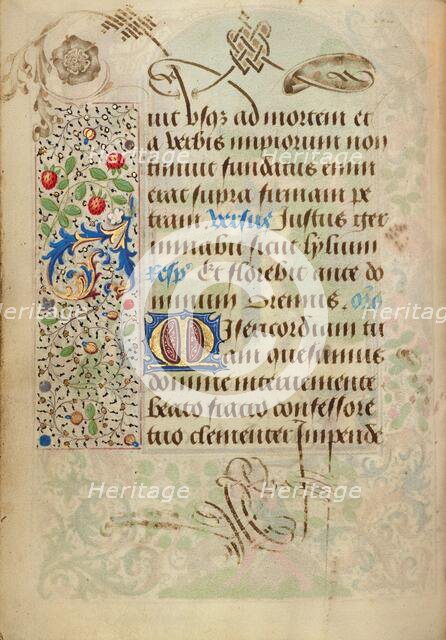 uit usq3 ad mortem et
a verbis impiorum non
timuit fundatus enim
erat supra firmam pe
tram versus Justus ger
minabit sicut lylium
resp Et florebit ante do
minum Oremus. oro
Misericordiam tu
am quesumus
domine interueniente
beato fiacro confessore
tuo clementer Impende
Heritage Heritage Heritage
Heritage Heritage Heritage
Heritage Heritage Heritage